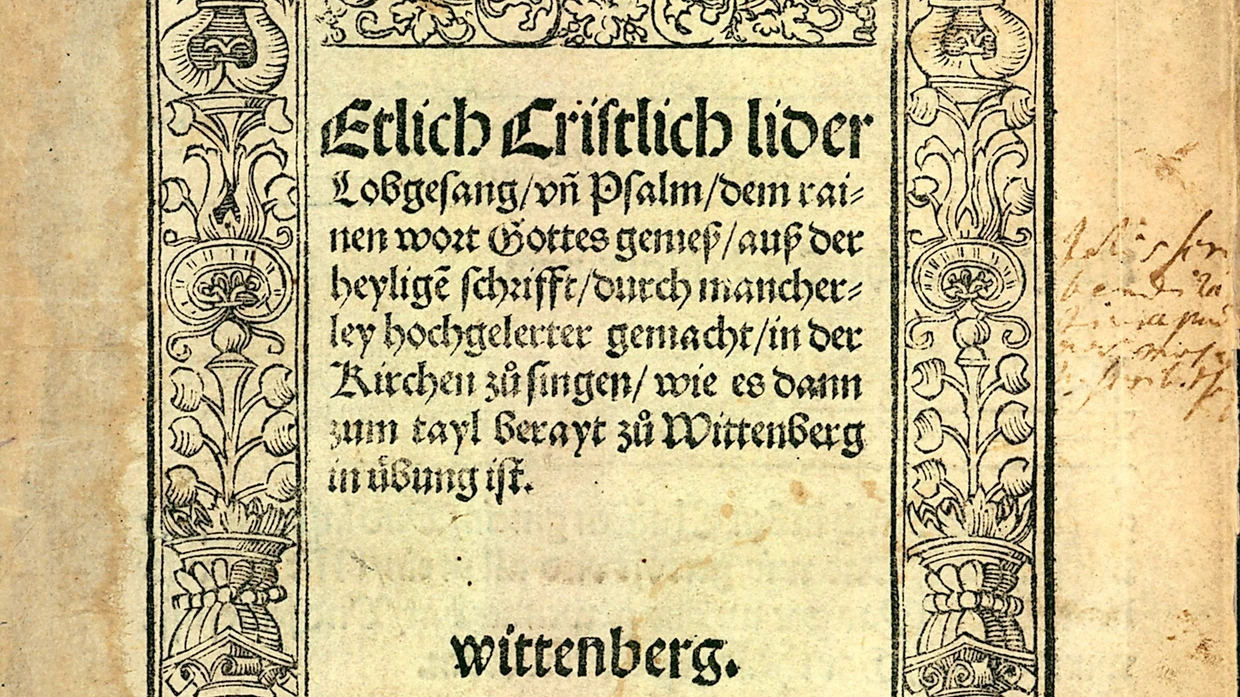 Etlich Cristlich lider
Lobgesang/vñ Psalm/dem rai⸗
nen wort Gottes gemeß/auß der
heyligẽ schrifft/durch mancher⸗
ley hochgelerter gemacht/in der
Kirchen zů singen/ wie es dann
zum tayl berayt zů Wittenberg
in übung ist.
wittenberg.